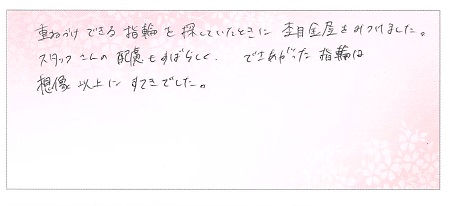 重ねづけできる指輪を探していたときに杢目金屋をみつけました。
スタッフさんの配慮もすばらしく、できあがった指輪は
想像以上にすてきでした。